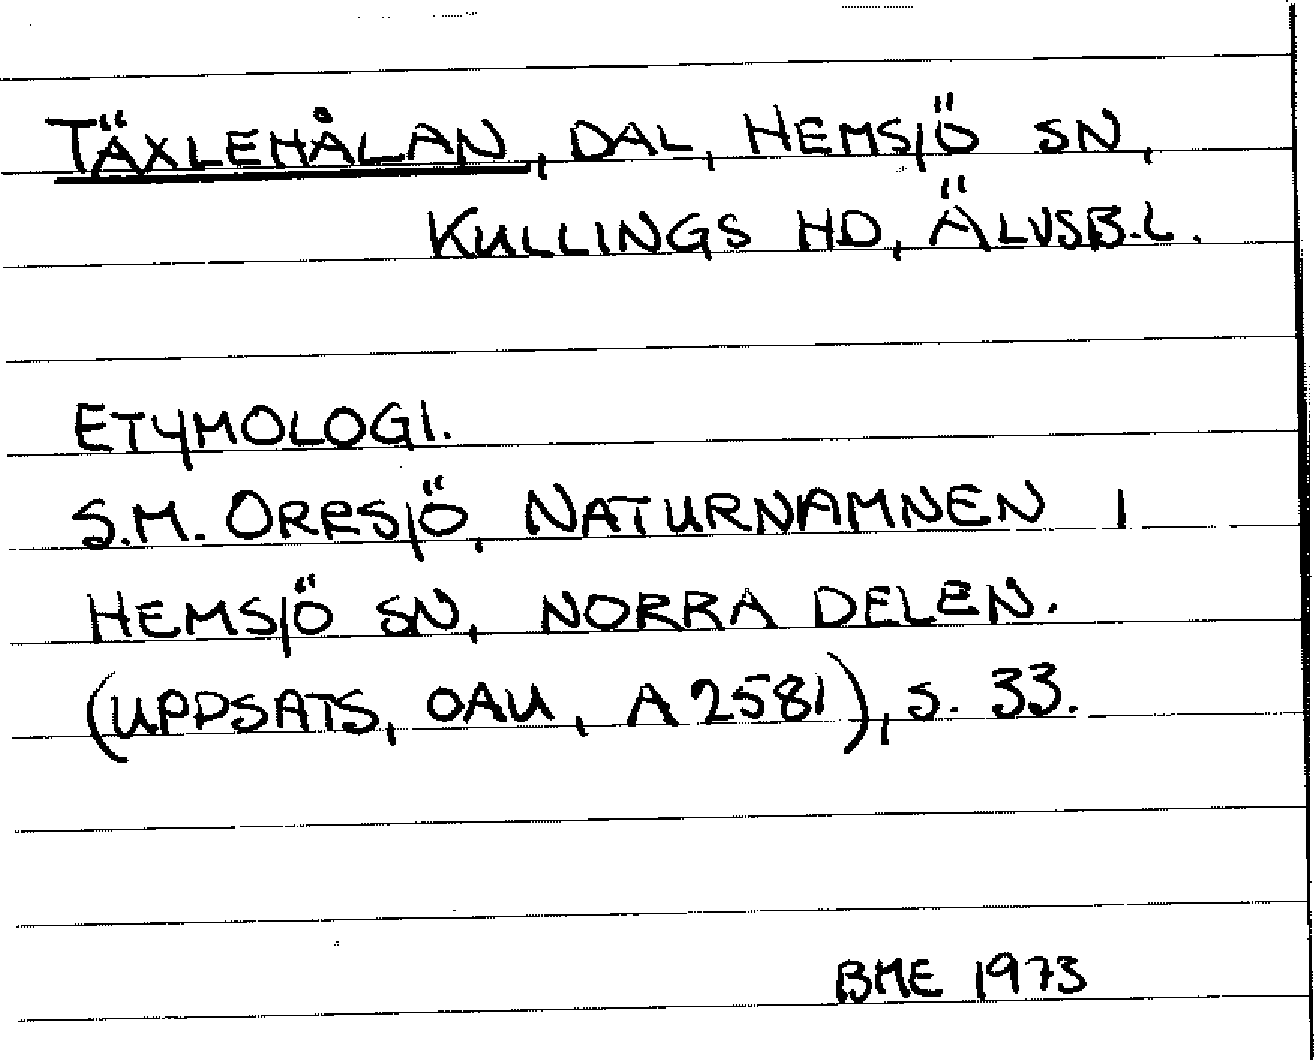 TÄXLEHÅLAN, DAL, HEMSJÖ SN,
KULLINGS HD, ÄLVSB.L.
ETYMOLOGI.
S.M. ORRSJÖ, NATURNAMNEN I
HEMSJÖ SN, NORRA DELEN.
(UPPSATS, OAU, A 2581), S. 33.
BME 1973